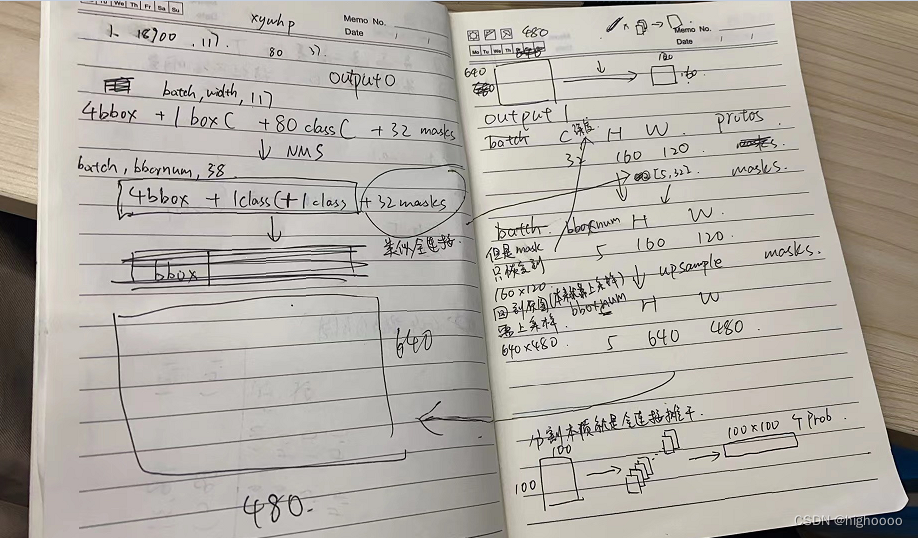 Tu We Th Fr Sa Su
Memo No.
Date / /
xywhp
1. 18900 . 117.
80 37.
output0
batch, width, 117
4bbox + 1 box C + 80 class C + 32 masks
↓ NMS
batch, bbornum, 38
4bbox + 1class C + 1 class + 32 masks
类似全连接.
bbox
640
480.
Mo Tu We Th
480
Memo No.
Date / /
640
120
160
output 1
batch C 深度 H W protos
32 160 120
[5,32]. masks.
batch. bboxnum H W.
但是mask
只恢复到 5 160 120.
160×120 upsample masks.
回到原图(本来就是上采样)
需上采样 bbornum H W
640×480. 5 640 480.
分割本质就是全连接摊平.
100 100×100 个 Prob.
100
CSDN @highoooo